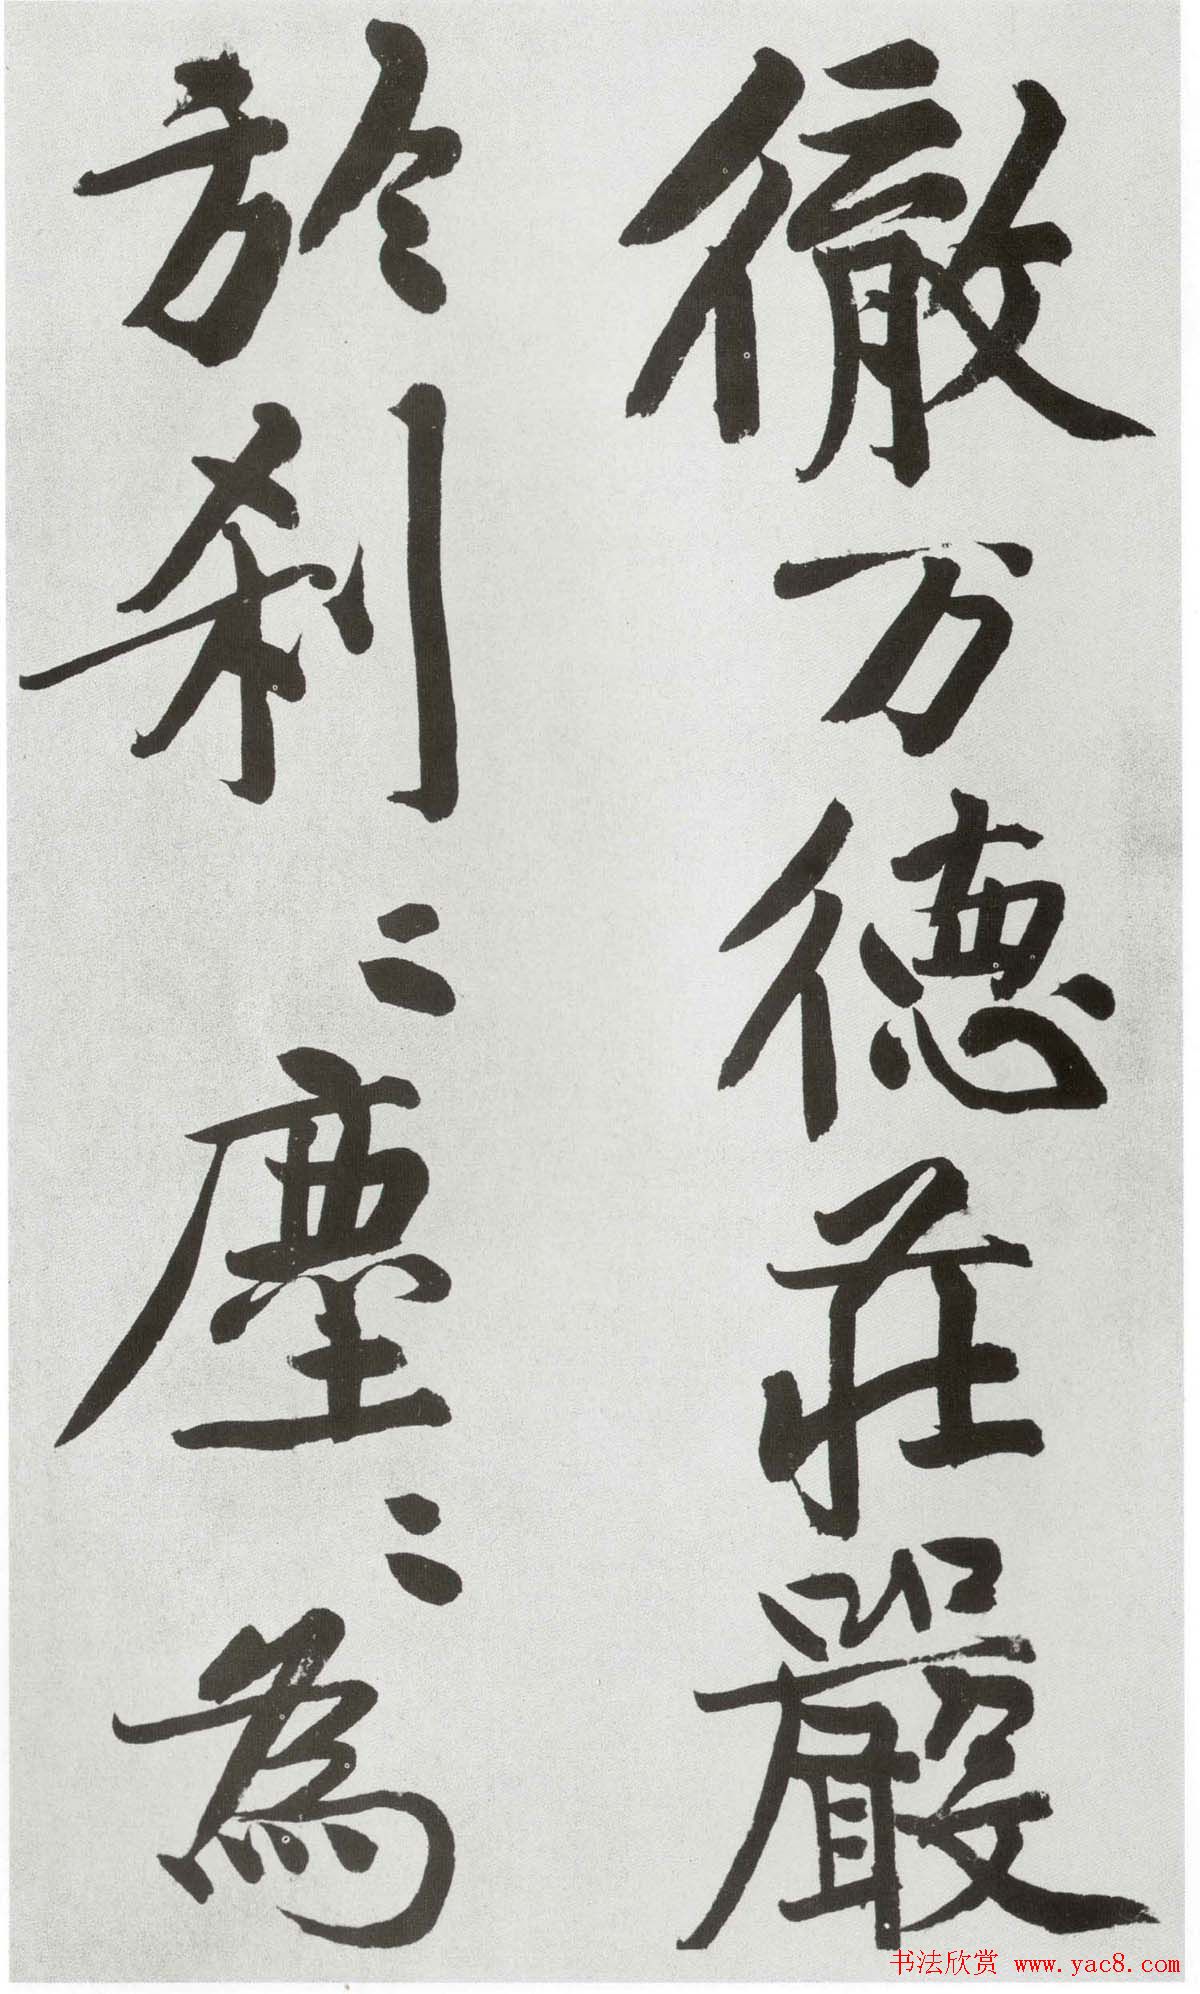 徹万德莊嚴
於刹〻塵〻為
书法欣赏 www.yac8.com